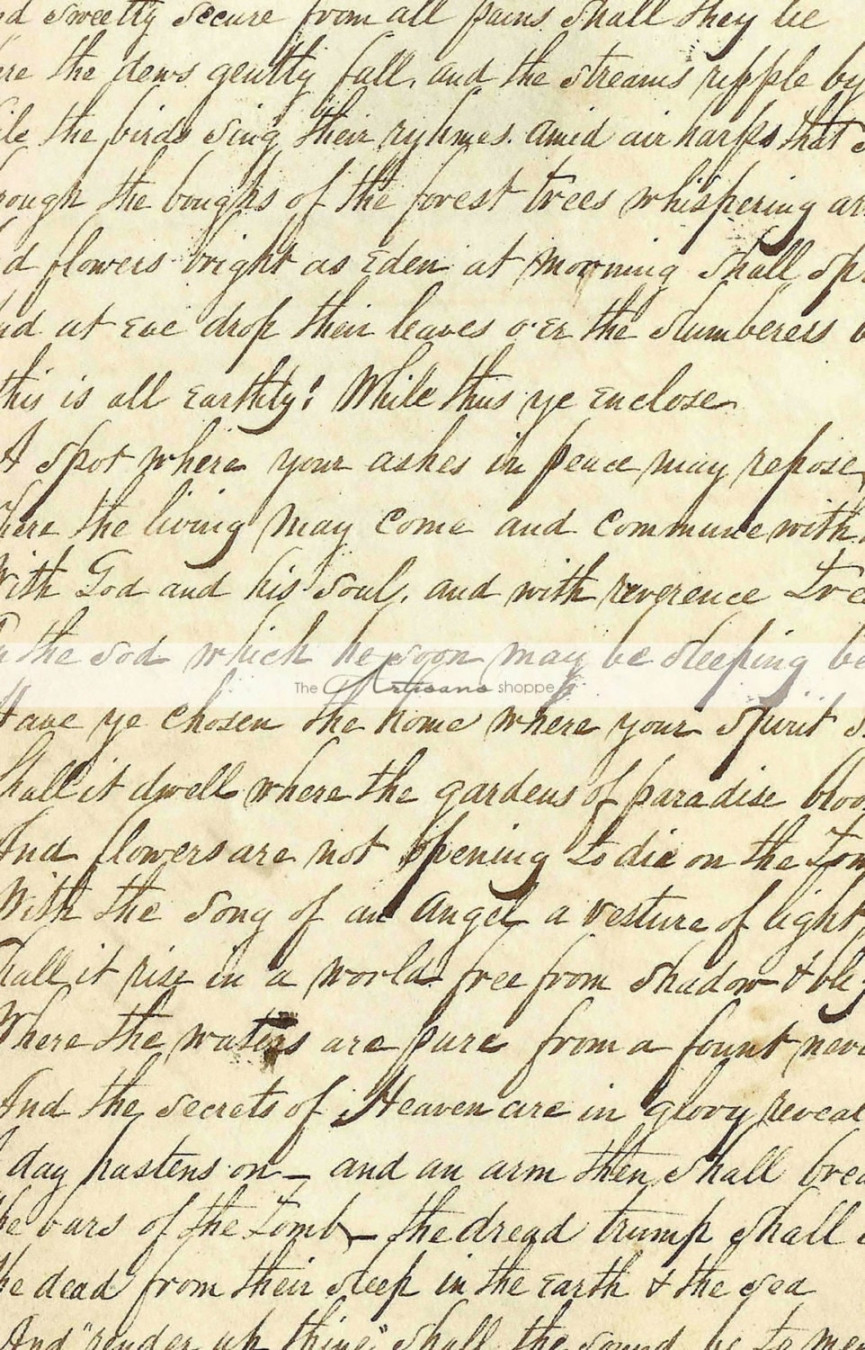 nd sweetly secure from all pains shall they lie
ere the dews gently fall, and the streams ripple by
ile the birds sing their ryhmes. amid air harps that s
rough the boughs of the forest trees whispering ar
d flowers bright as Eden at morning shall sp
nd at eve drop their leaves o'er the slumberers b
this is all earthly! While thus ye enclose
A spot where your ashes in peace may repose,
here the living may come and commune with
With God and his soul, and with reverence tre
n the sod which he soon may be sleeping be
The Artisans shoppe
Have ye chosen the home where your spirit s
Shall it dwell where the gardens of paradise bloo
And flowers are not opening to die on the Tom
With the song of an angel a vesture of light
Shall it rise in a world free from shadow & bli
Where the waters are pure from a fount neve
And the secrets of Heaven are in glory reveal
day hastens on — and an arm then shall brea
he bars of the Tomb — the dread trump shall
he dead from their sleep in the earth & the sea
And "render up thine" shall the sound be to me